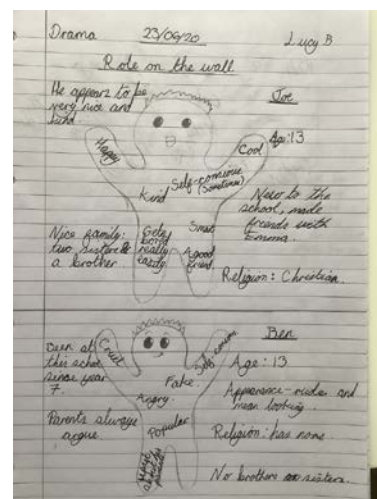 Drama 23/09/20 Lucy B
Role on the wall
He appears to be
very nice and
kind
Joe
Age:13
Happy
Cool
Kind
Self-conscious
(Sometimes)
New to the
school, made
friends with
Emma.
Nice family:
two sisters &
a brother
Gets
bored
really
easily
Smart
A good
friend
Religion: Christian.
Ben
Been at
this school
since year
7.
Cruel
Fake
Angry
Popular
Age: 13
Appearance - rude and
mean looking.
Parents always
argue.
Religion: has none.
No brothers or sisters.